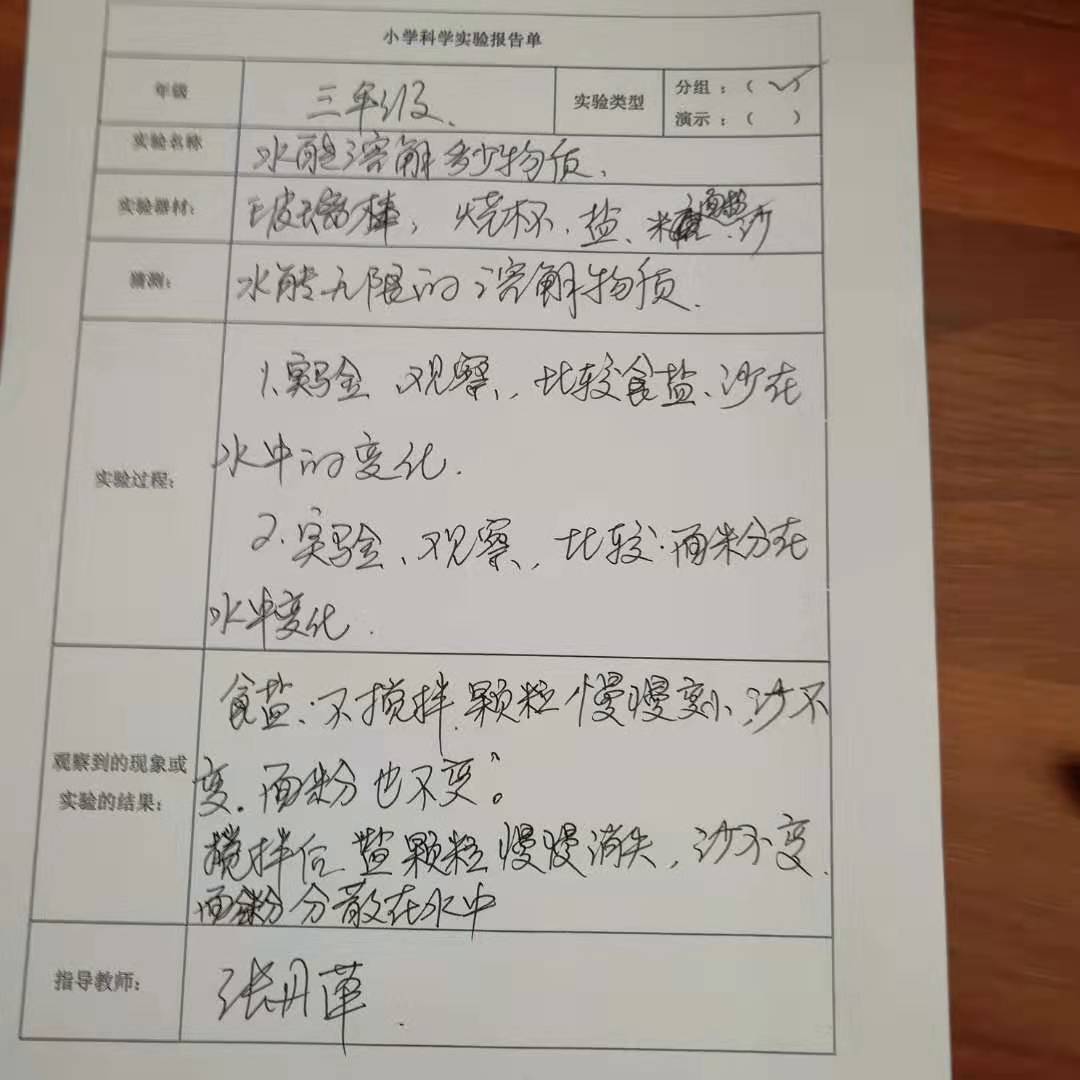 小学科学实验报告单
年级 三年级. 实验类型 分组：（✓）
演示：（ ）
实验名称 水能溶解多少物质.
实验器材： 玻璃棒，烧杯、盐、面粉、沙
猜测： 水能无限的溶解物质.
1.实验、观察，比较食盐、沙在
水中的变化.
实验过程：
2.实验、观察，比较.面粉在
水中变化.
食盐:不搅拌颗粒慢慢变小,沙不
观察到的现象或
变.面粉也不变。
实验的结果：
搅拌后盐颗粒慢慢消失,沙不变.
面粉分散在水中
指导教师： 张丹莲.